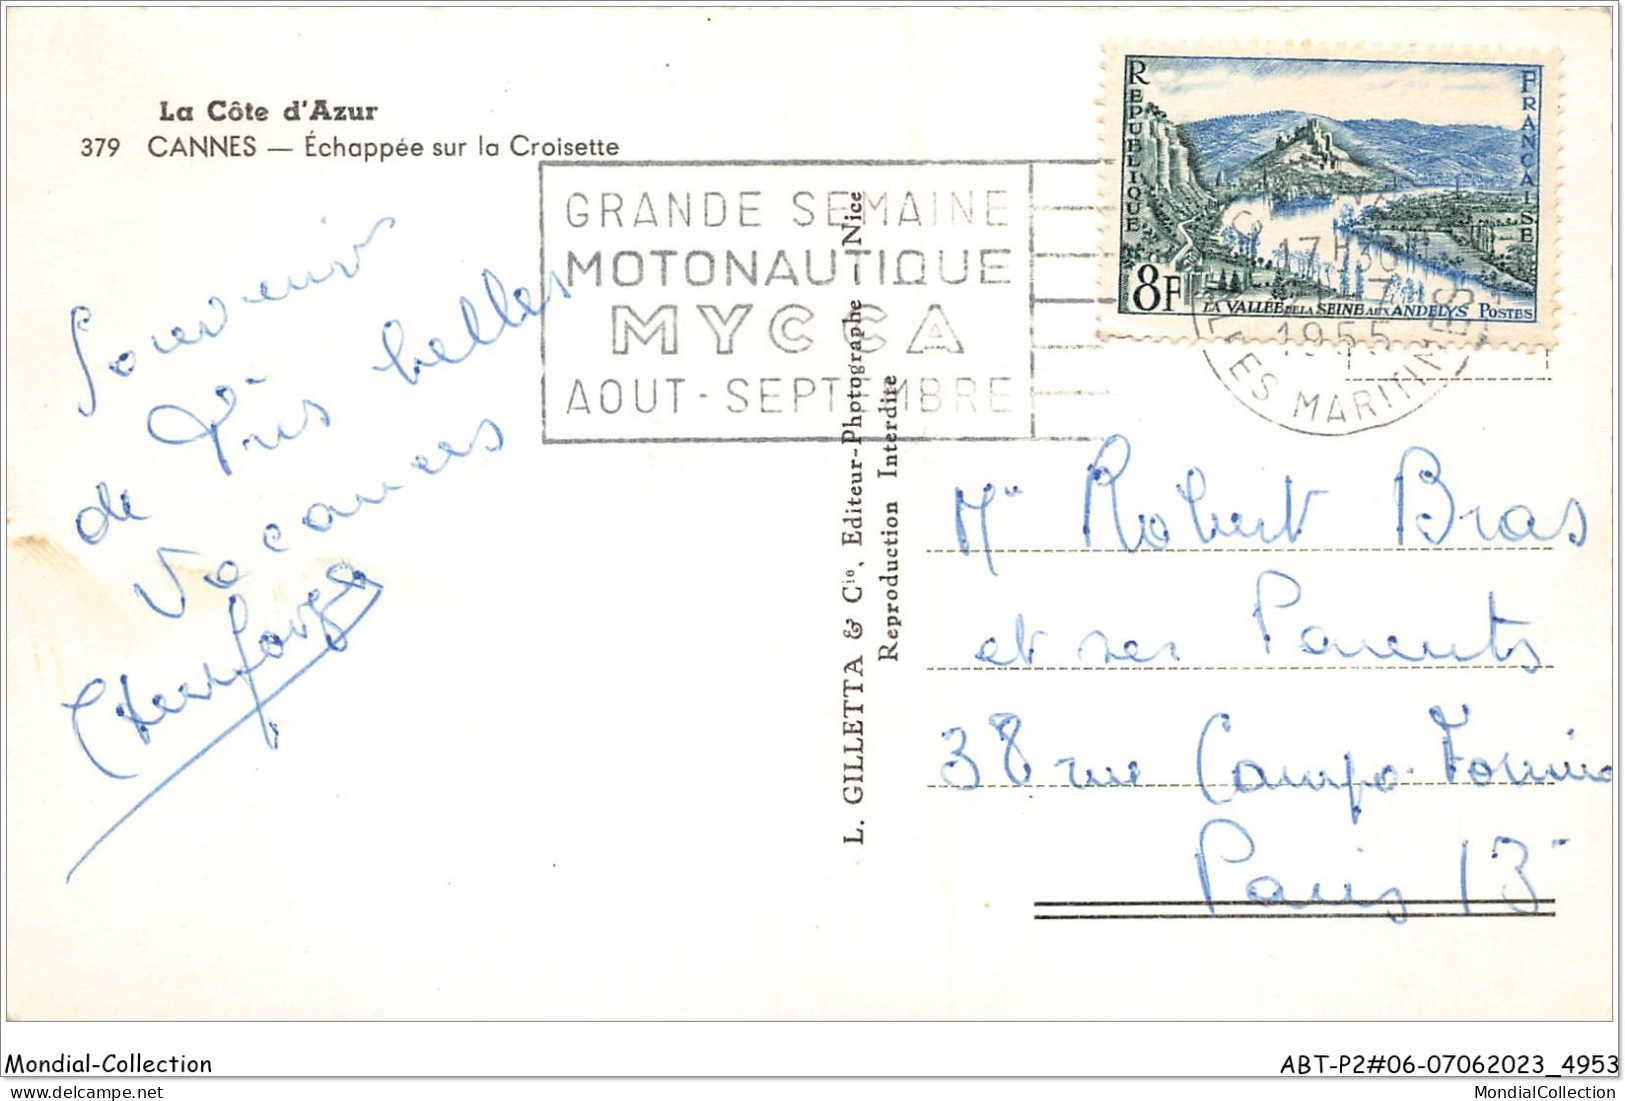 La Côte d'Azur
379 CANNES — Échappée sur la Croisette
GRANDE SEMAINE
MOTONAUTIQUE
MYCCA
AOUT - SEPTEMBRE
RÉPUBLIQUE
FRANÇAISE
8F
LA VALLÉE DE LA SEINE AUX ANDELYS POSTES
17H30
7
1955
MARITIMES
Souvenir
de très belles
vacances
L. GILLETTA & Cie, Editeur-Photographe — Nice
Reproduction Interdite
Mr Robert Bras
et ses Parents
38 rue Campo-Formio
Paris 13
Mondial-Collection
ABT-P2#06-07062023_4953
MondialCollection